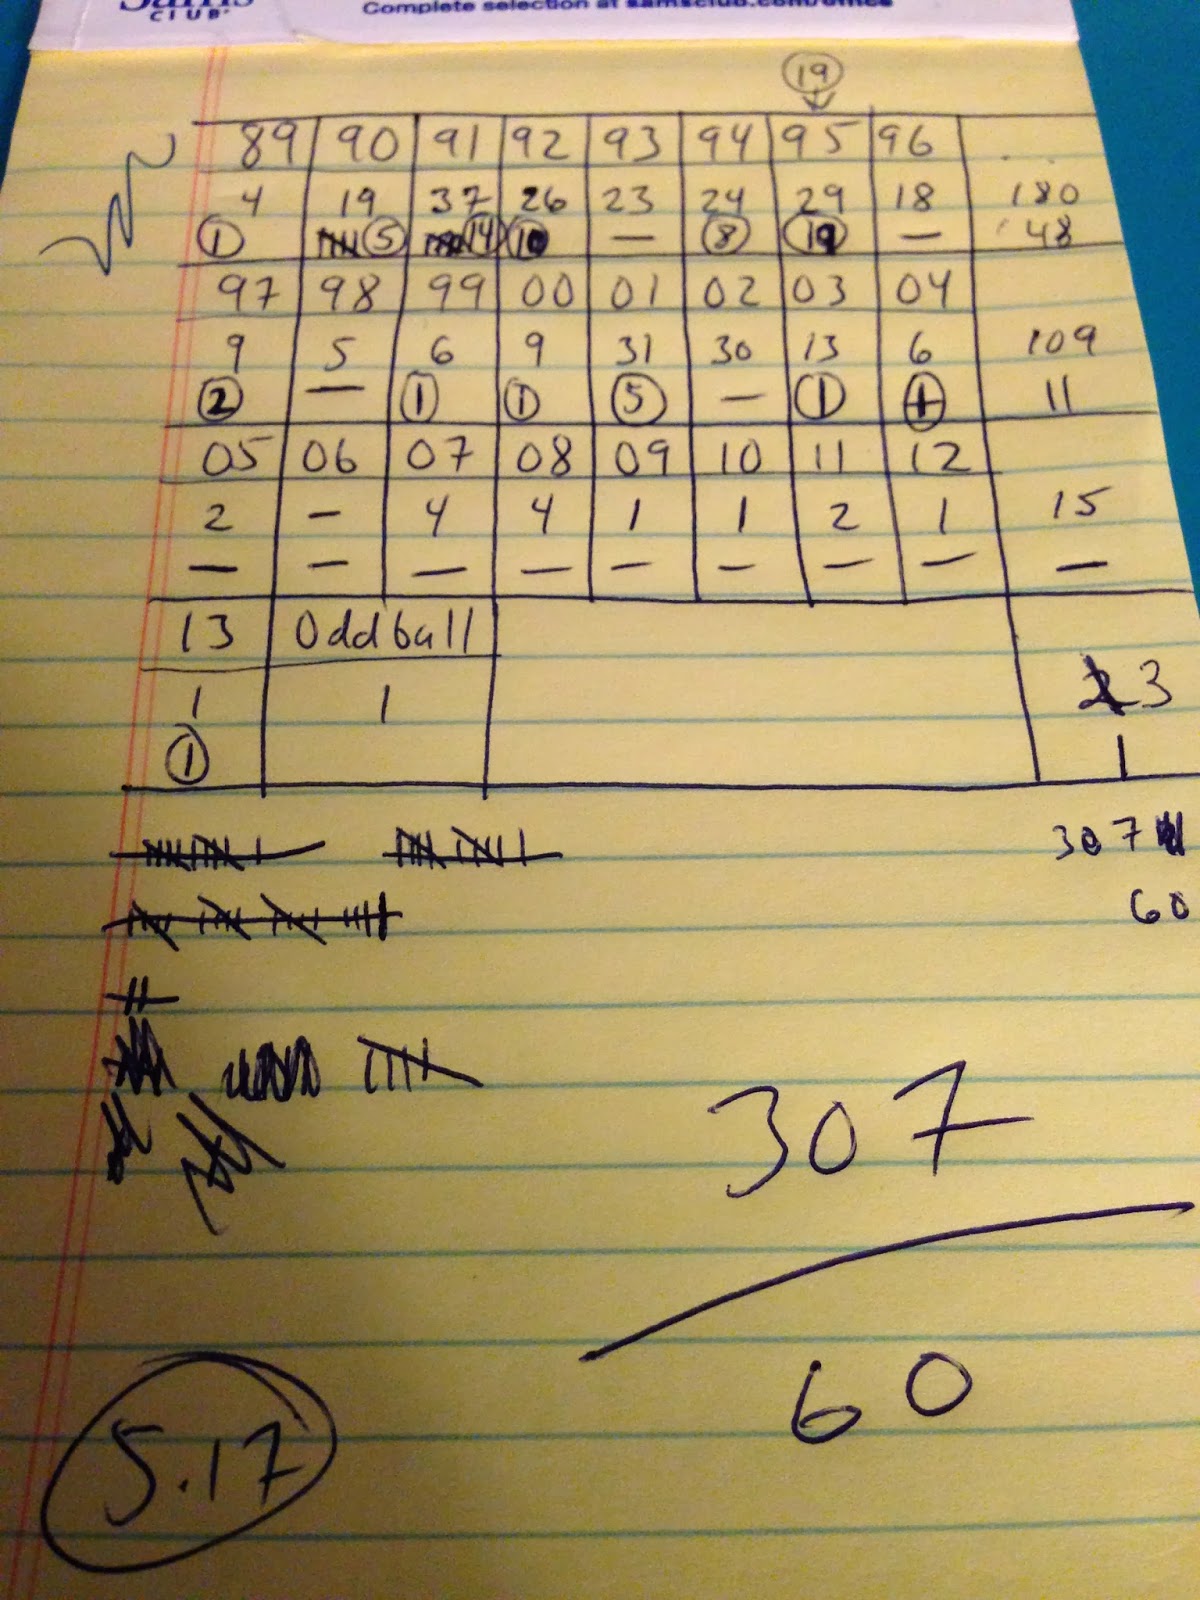 CLUB
Complete selection at samsclub.com/office
19
89 90 91 92 93 94 95 96
4 19 37 26 23 24 29 18 180
1 5 14 10 — 8 19 — 48
97 98 99 00 01 02 03 04
9 5 6 9 31 30 13 6 109
2 — 1 1 5 — 1 1 11
05 06 07 08 09 10 11 12
2 – 4 4 1 1 2 1 15
— — — — — — — — —
13 Oddball
1 1 3
1 1
307
60
307
60
5.17